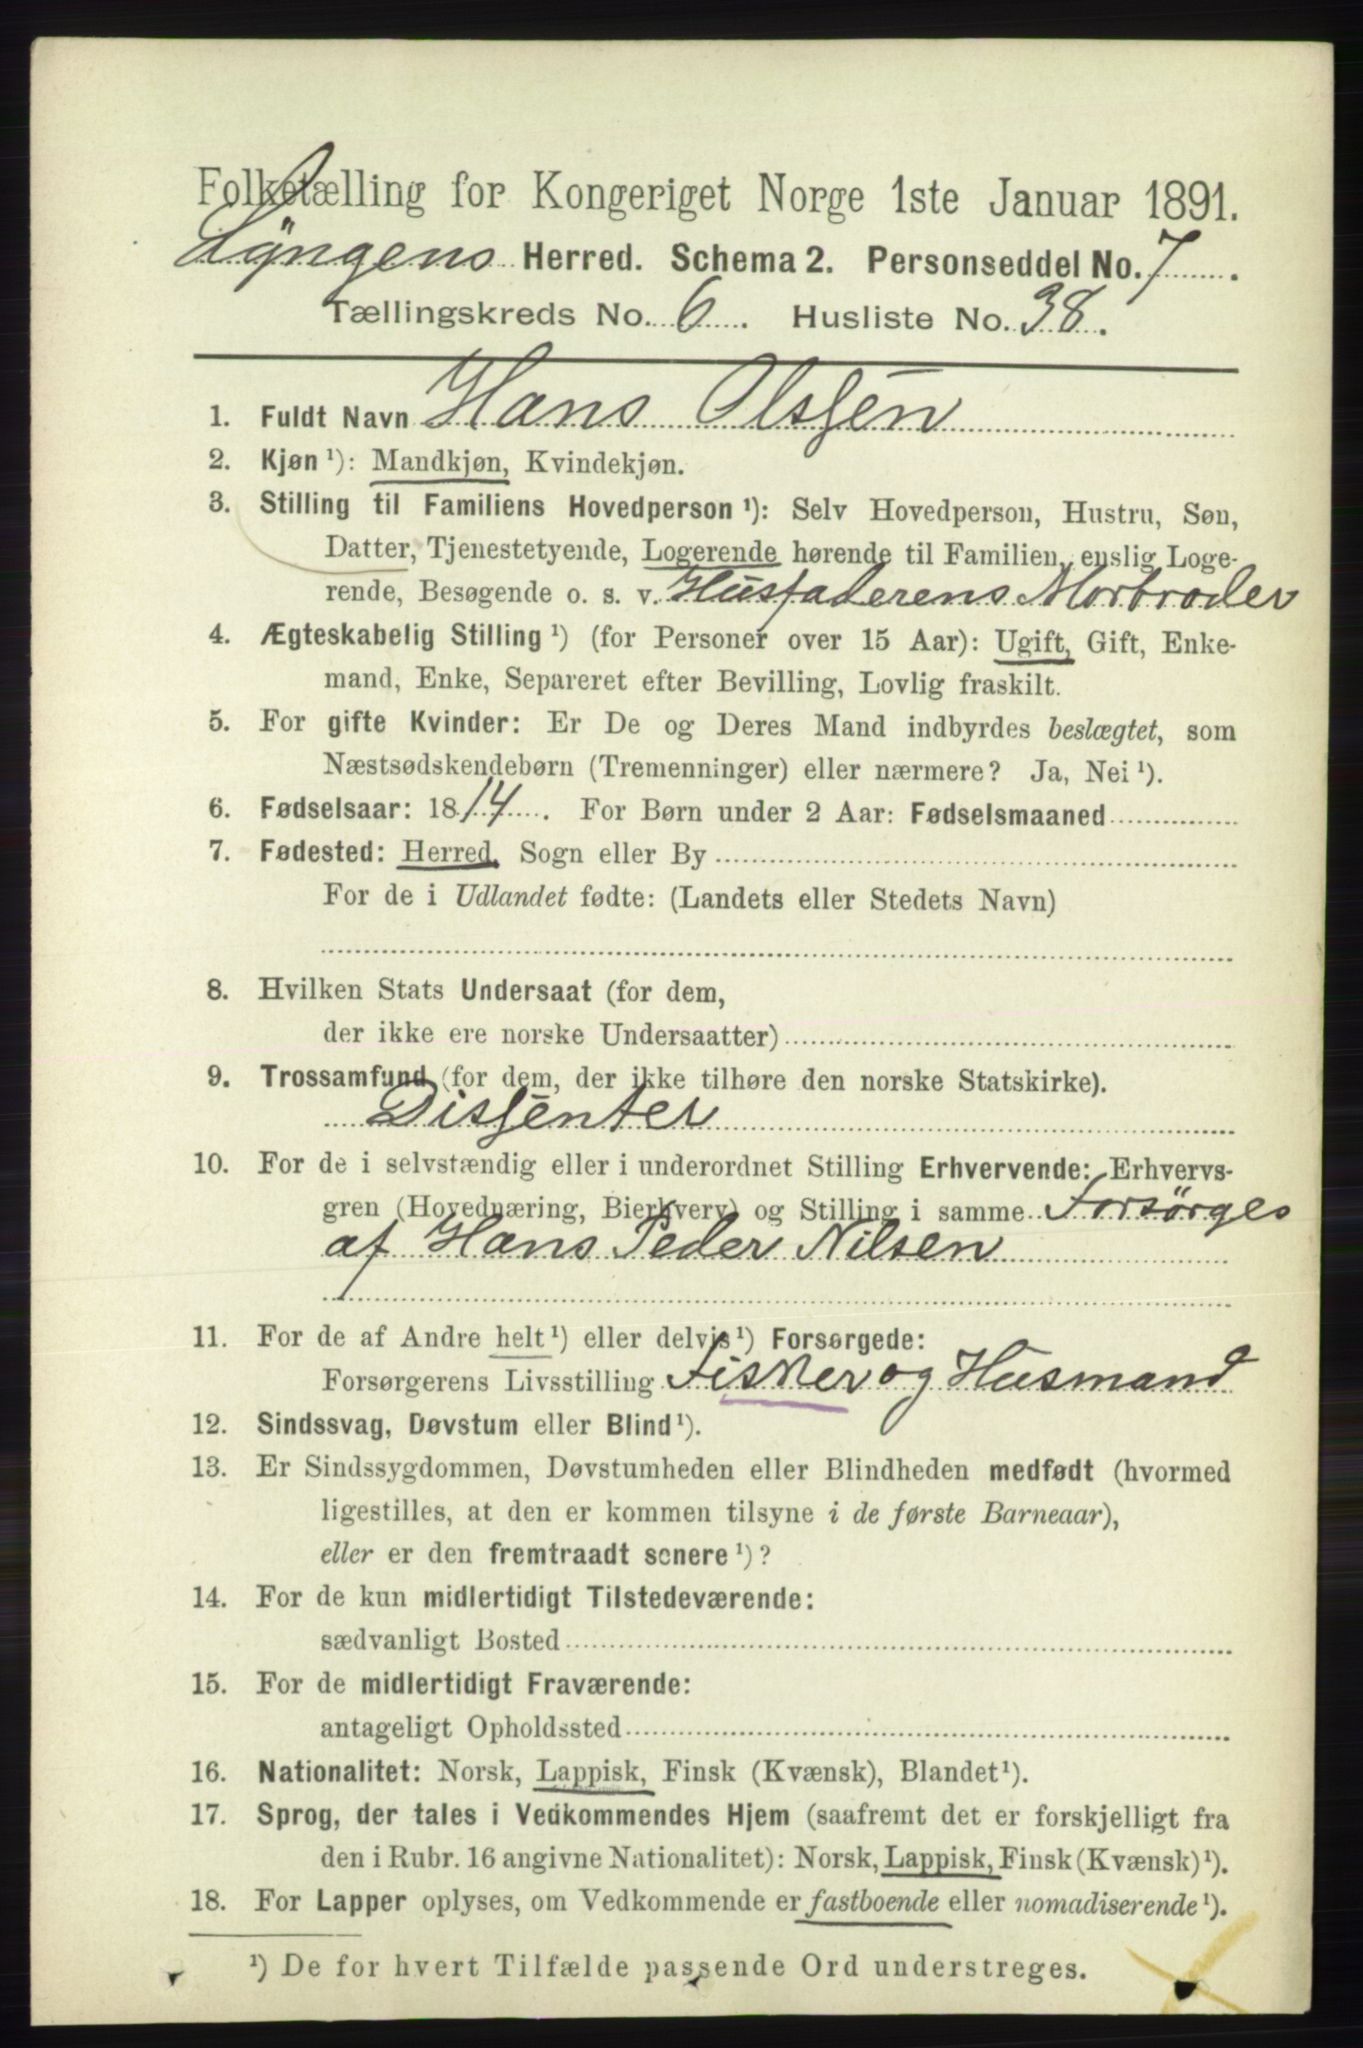 Folketælling for Kongeriget Norge 1ste Januar 1891.
Lyngens Herred. Schema 2. Personseddel No. 7.
Tællingskreds No. 6. Husliste No. 38.
1. Fuldt Navn Hans Olssen
2. Kjøn ¹): Mandkjøn, Kvindekjøn.
3. Stilling til Familiens Hovedperson ¹): Selv Hovedperson, Hustru, Søn,
Datter, Tjenestetyende, Logerende hørende til Familien, enslig Loge-
rende, Besøgende o. s. v. Husfaderens Morbroder
4. Ægteskabelig Stilling ¹) (for Personer over 15 Aar): Ugift, Gift, Enke-
mand, Enke, Separeret efter Bevilling, Lovlig fraskilt.
5. For gifte Kvinder: Er De og Deres Mand indbyrdes beslægtet, som
Næstsødskendebørn (Tremenninger) eller nærmere? Ja, Nei ¹).
6. Fødselsaar: 1814. For Børn under 2 Aar: Fødselsmaaned
7. Fødested: Herred, Sogn eller By
For de i Udlandet fødte: (Landets eller Stedets Navn)
8. Hvilken Stats Undersaat (for dem,
der ikke ere norske Undersaatter)
9. Trossamfund (for dem, der ikke tilhøre den norske Statskirke).
Dissenter
10. For de i selvstændig eller i underordnet Stilling Erhvervende: Erhvervs-
gren (Hovednæring, Bierhverv) og Stilling i samme Forsørges
af Hans Peder Nilsen
11. For de af Andre helt ¹) eller delvis ¹) Forsørgede:
Forsørgerens Livsstilling Fisker og Husmand
12. Sindssvag, Døvstum eller Blind ¹).
13. Er Sindssygdommen, Døvstumheden eller Blindheden medfødt (hvormed
ligestilles, at den er kommen tilsyne i de første Barneaar),
eller er den fremtraadt senere ¹)?
14. For de kun midlertidigt Tilstedeværende:
sædvanligt Bosted
15. For de midlertidigt Fraværende:
antageligt Opholdssted
16. Nationalitet: Norsk, Lappisk, Finsk (Kvænsk), Blandet ¹).
17. Sprog, der tales i Vedkommendes Hjem (saafremt det er forskjelligt fra
den i Rubr. 16 angivne Nationalitet): Norsk, Lappisk, Finsk (Kvænsk) ¹).
18. For Lapper oplyses, om Vedkommende er fastboende eller nomadiserende ¹).
¹) De for hvert Tilfælde passende Ord understreges.